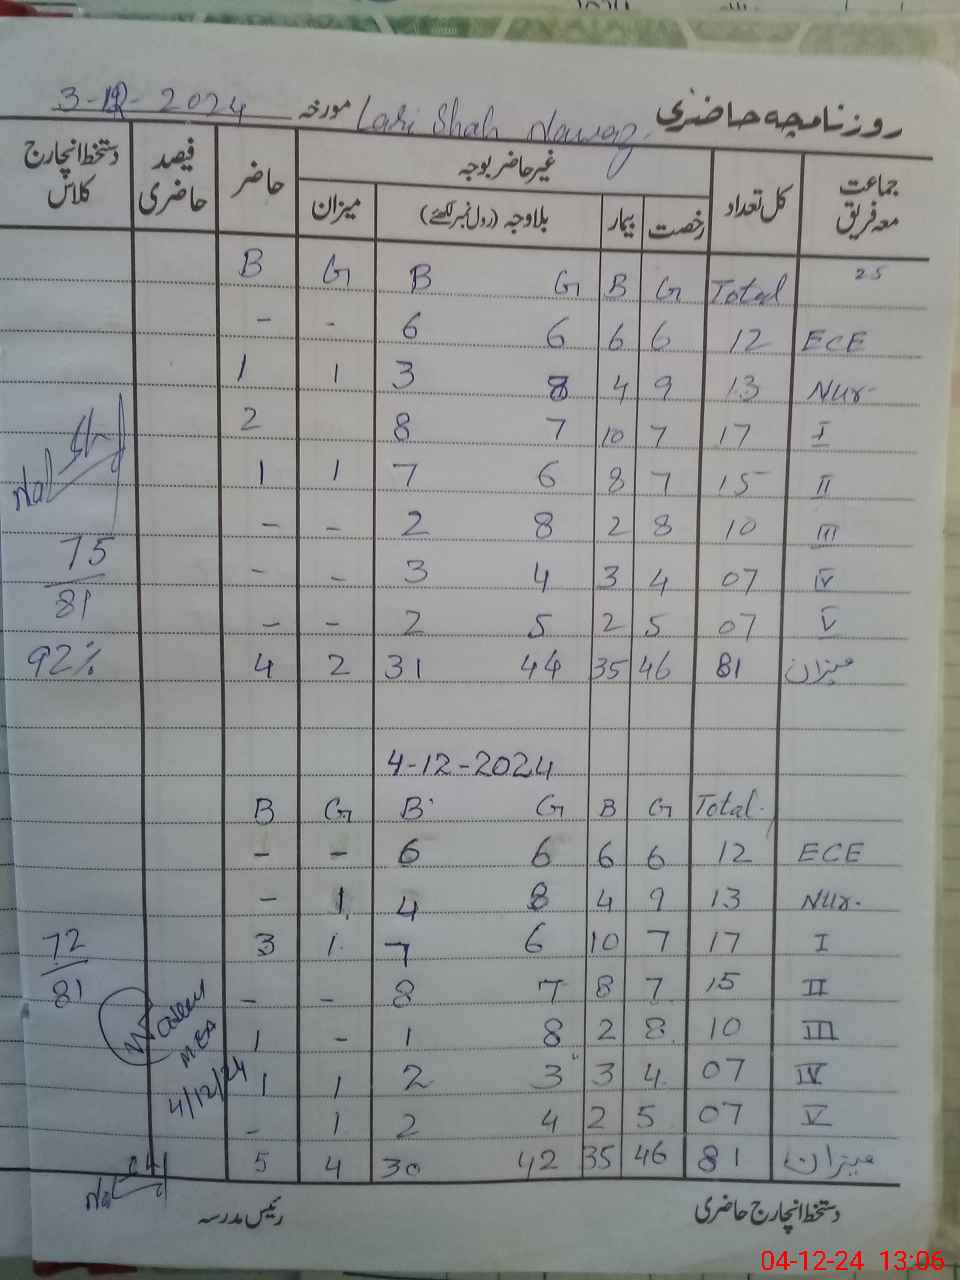 روزنامچہ حاضری Lari Shah Nawaz مورخہ 3-12-2024
جماعت معہ فریق کل تعداد غیر حاضر بوجہ حاضر فیصد حاضری دستخط انچارج کلاس
رخصت بیمار بلاوجہ (رول نمبر لکھئے) میزان
25 Total G B G B G B
ECE 12 6 6 6 6 - -
Nur- 13 9 4 8 3 1 1
I 17 7 10 7 8 2
II 15 7 8 6 7 1 1
III 10 8 2 8 2 - -
IV 07 4 3 4 3 - - 75
V 07 5 2 5 2 - - 81
میزان 81 46 35 44 31 2 4 92%
4-12-2024
Total G B G B G B
ECE 12 6 6 6 6 - -
Nur- 13 9 4 8 4 1 -
I 17 7 10 6 7 1 3 72
II 15 7 8 7 8 - - 81
III 10 8 2 8 1 - 1
IV 07 4 3 3 2 1 1 4/12/24
V 07 5 2 4 2 1 -
میزان 81 46 35 42 30 4 5
دستخط انچارج حاضری رئیس مدرسہ
04-12-24 13:06